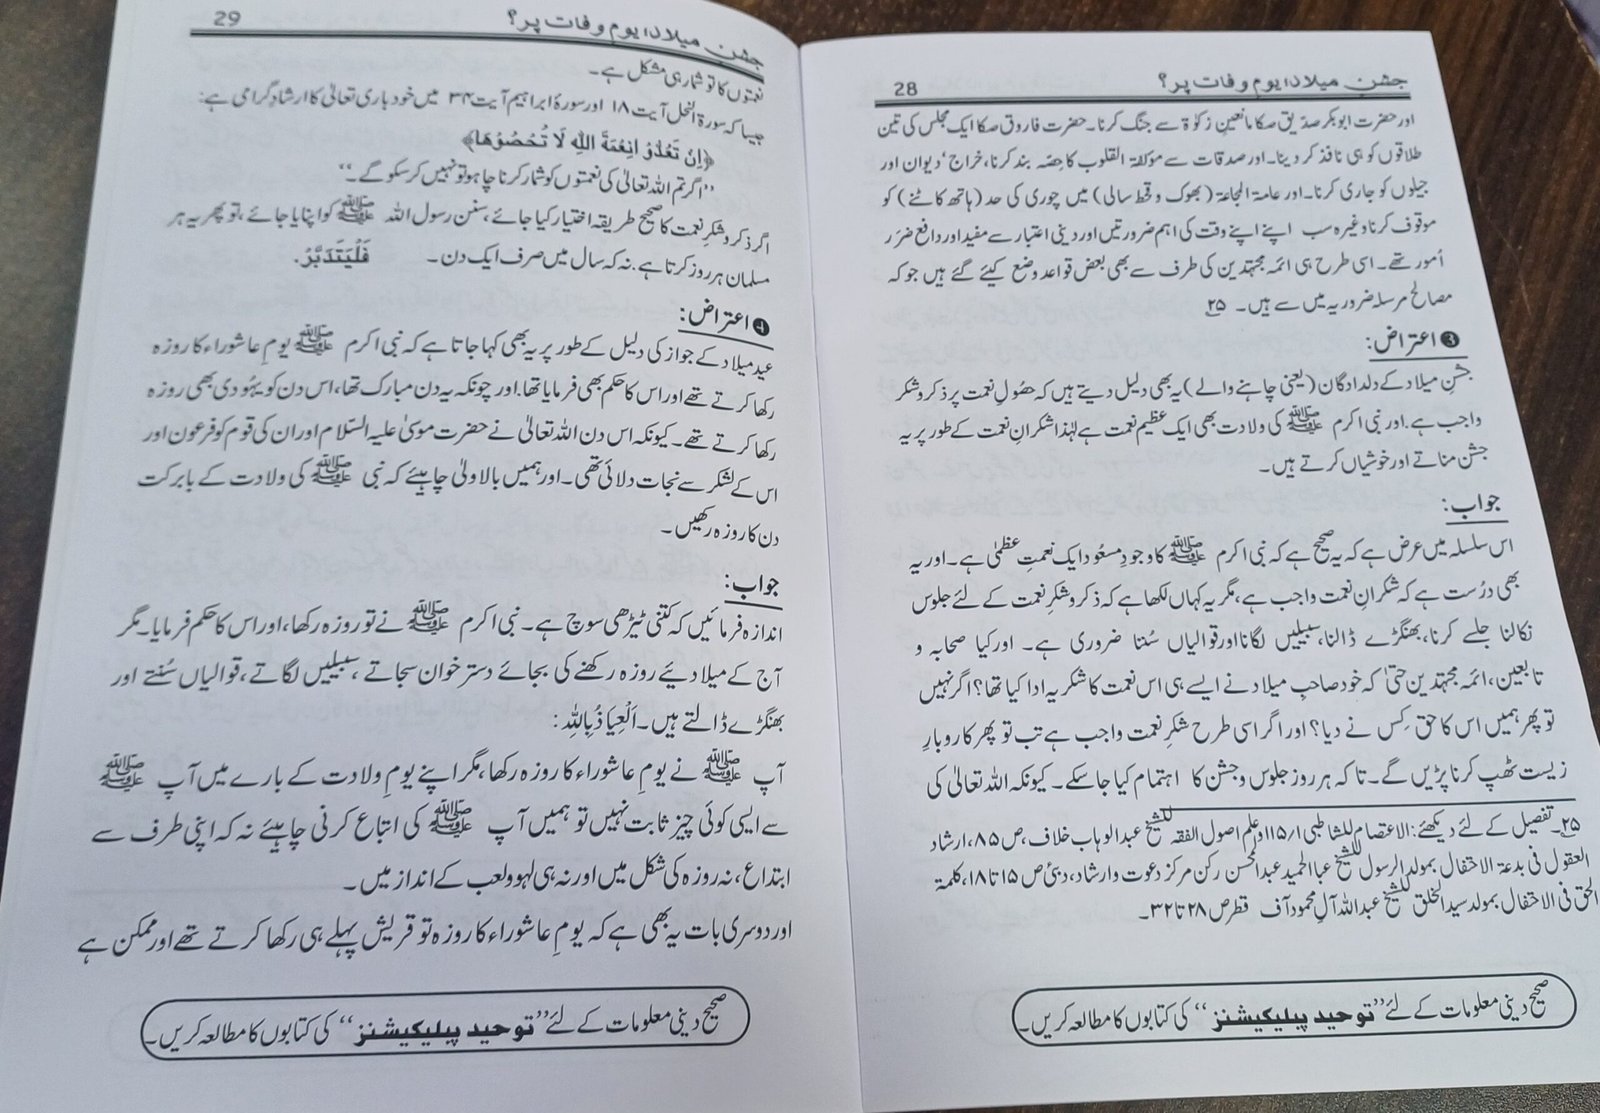 جشنِ میلاد: یومِ وفات پر؟ 28
اور حضرت ابو بکر صدیق صکا مانعینِ زکوٰۃ سے جنگ کرنا۔ حضرت فاروق صکا ایک مجلس کی تین
طلاقوں کو ہی نافذ کر دینا۔ اور صدقات سے مؤلفۃ القلوب کا حِصّہ بند کرنا، خراج' دیوان اور
جیلوں کو جاری کرنا۔ اور عامۃ المجاعۃ (بھوک و قحط سالی) میں چوری کی حد (ہاتھ کاٹنے) کو
موقوف کرنا وغیرہ سب اپنے اپنے وقت کی اہم ضرورتیں اور دینی اعتبار سے مفید اور دافع ضرَر
اُمور تھے۔ اسی طرح ہی ائمہ مجتہدین کی طرف سے بھی بعض قواعد وضع کیئے گئے ہیں جو کہ
مصالحِ مرسلہ ضروریہ میں سے ہیں۔ ۲۵
❸ اعتراض:
جشنِ میلاد کے دلدادگان (یعنی چاہنے والے) یہ بھی دلیل دیتے ہیں کہ حصُولِ نعمت پر ذکر و شکر
واجب ہے. اور نبی اکرم ﷺ کی ولادت بھی ایک عظیم نعمت ہے لہٰذا شکرانِ نعمت کے طور پر یہ
جشن مناتے اور خوشیاں کرتے ہیں۔
جواب:
اس سلسلہ میں عرض ہے کہ یہ صحیح ہے کہ نبی اکرم ﷺ کا وجودِ مسعُود ایک نعمتِ عظمیٰ ہے۔ اور یہ
بھی درُست ہے کہ شکرانِ نعمت واجب ہے، مگر یہ کہاں لکھا ہے کہ ذکر و شکرِ نعمت کے لئے جلوس
نکالنا جلسے کرنا، بھنگڑے ڈالنا، سبیلیں لگانا اور قوالیاں سُننا ضروری ہے۔ اور کیا صحابہ و
تابعین، ائمہ مجتہدین حتیٰ کہ خود صاحبِ میلاد نے ایسے ہی اس نعمت کا شکریہ ادا کیا تھا؟ اگر نہیں
تو پھر ہمیں اس کا حق کِس نے دیا؟ اور اگر اسی طرح شکرِ نعمت واجب ہے تب تو پھر کاروبارِ
زیست ٹھپ کرنا پڑیں گے۔ تاکہ ہر روز جلوس و جشن کا اہتمام کیا جا سکے۔ کیونکہ اللہ تعالیٰ کی
۲۵۔ تفصیل کے لئے دیکھئے: الاعتصام للشاطبی ۱/۱۱۵ و علم اصول الفقہ للشیخ عبدالوہاب خلاف، ص ۸۵، ارشاد
العقول فی بدعۃ الاحتفال بمولد الرسول للشیخ عبدالحمید عبدالمحسن رکن مرکز دعوت و ارشاد، دبئی ص ۱۵ تا ۱۸، کلمۃ
الحق فی الاحتفال بمولد سید الخلق للشیخ عبداللہ آلِ محمود آف قطر ص ۲۸ تا ۳۲۔
صحیح دینی معلومات کے لئے "توحید پبلیکیشنز" کی کتابوں کا مطالعہ کریں۔
جشنِ میلاد: یومِ وفات پر؟ 29
نعمتوں کا تو شمار ہی مشکل ہے۔
جیسا کہ سورۃ النحل آیت ۱۸ اور سورۂ ابراہیم آیت ۳۴ میں خود باری تعالیٰ کا ارشادِ گرامی ہے:
﴿اِنْ تَعُدُّوْ انِعْمَةَ اللهِ لَا تُحْصُوْهَا﴾
"اگر تم اللہ تعالیٰ کی نعمتوں کو شمار کرنا چاہو تو نہیں کر سکو گے۔"
اگر ذکر و شکرِ نعمت کا صحیح طریقہ اختیار کیا جائے، سننِ رسول اللہ ﷺ کو اپنایا جائے، تو پھر یہ ہر
مسلمان ہر روز کرتا ہے. نہ کہ سال میں صرف ایک دن۔ فَلْيَتَدَبَّرْ.
❹ اعتراض:
عید میلاد کے جواز کی دلیل کے طور پر یہ بھی کہا جاتا ہے کہ نبی اکرم ﷺ یومِ عاشوراء کا روزہ
رکھا کرتے تھے اور اس کا حکم بھی فرمایا تھا. اور چونکہ یہ دن مبارک تھا، اس دن کو یہُودی بھی روزہ
رکھا کرتے تھے۔ کیونکہ اس دن اللہ تعالیٰ نے حضرت موسیٰ علیہ السّلام اور ان کی قوم کو فرعون اور
اس کے لشکر سے نجات دلائی تھی۔ اور ہمیں بالاولیٰ چاہیئے کہ نبی ﷺ کی ولادت کے بابرکت
دن کا روزہ رکھیں۔
جواب:
اندازہ فرمائیں کہ کتنی ٹیڑھی سوچ ہے۔ نبی اکرم ﷺ نے تو روزہ رکھا، اور اس کا حکم فرمایا۔ مگر
آج کے میلادیئے روزہ رکھنے کی بجائے دسترخوان سجاتے، سبیلیں لگاتے، قوالیاں سُنتے اور
بھنگڑے ڈالتے ہیں۔ اَلْعِيَا ذُ بِاللّٰهِ:
آپ ﷺ نے یومِ عاشوراء کا روزہ رکھا، مگر اپنے یومِ ولادت کے بارے میں آپ ﷺ
سے ایسی کوئی چیز ثابت نہیں تو ہمیں آپ ﷺ کی اتباع کرنی چاہیئے نہ کہ اپنی طرف سے
ابتداع، نہ روزہ کی شکل میں اور نہ ہی لہو و لعب کے انداز میں۔
اور دوسری بات یہ بھی ہے کہ یومِ عاشوراء کا روزہ تو قریش پہلے ہی رکھا کرتے تھے اور ممکن ہے
صحیح دینی معلومات کے لئے "توحید پبلیکیشنز" کی کتابوں کا مطالعہ کریں۔